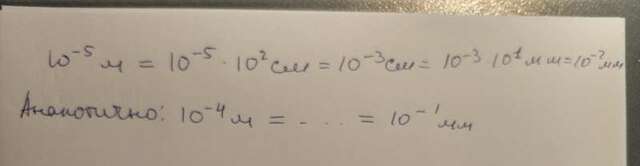 10⁻⁵ м = 10⁻⁵ · 10² см = 10⁻³ см = 10⁻³ 10¹ мм = 10⁻² мм
Аналогично: 10⁻⁴ м = . . . = 10⁻¹ мм